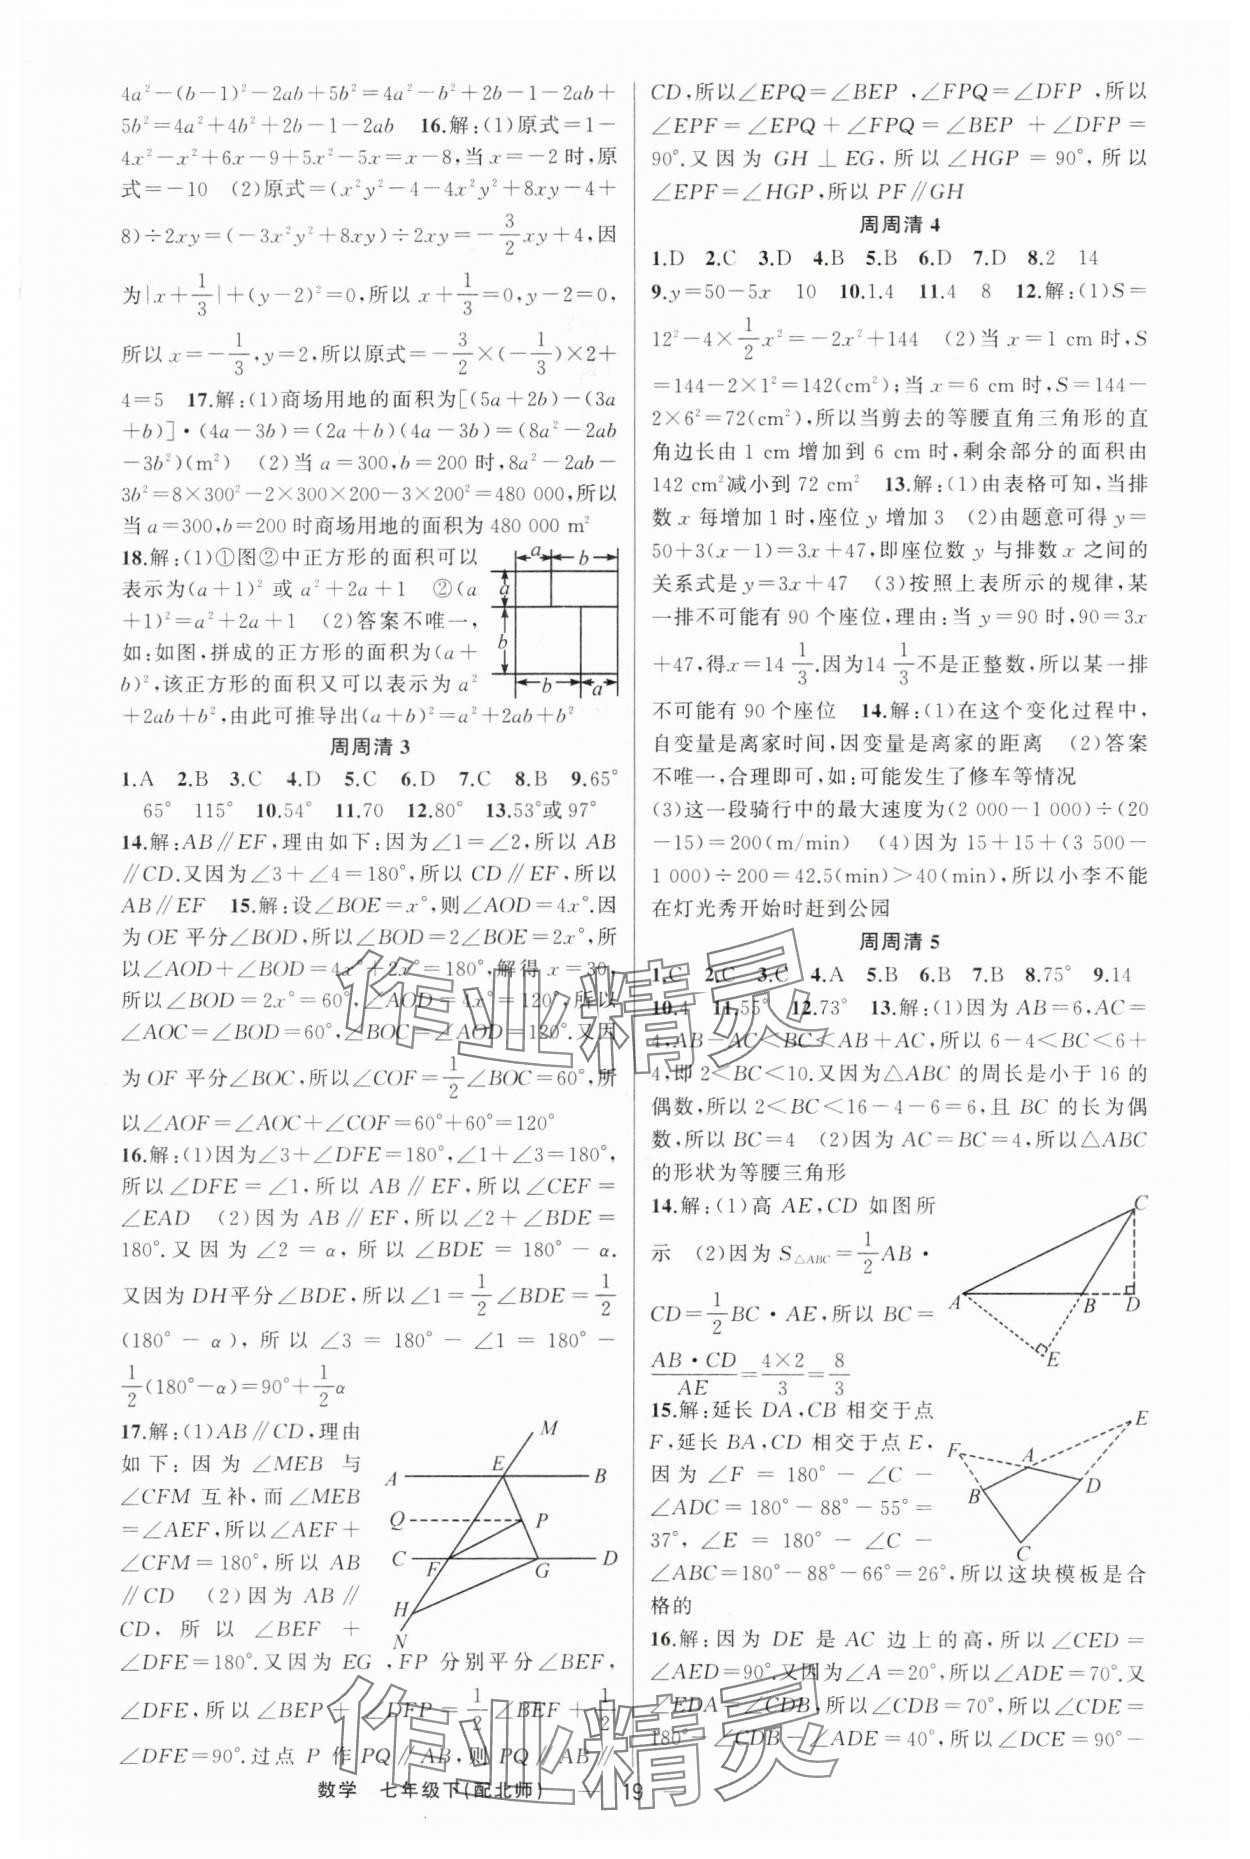 4a²-(b-1)²-2ab+5b²=4a²-b²+2b-1-2ab+
5b²=4a²+4b²+2b-1-2ab 16.解:(1)原式=1-
4x²-x²+6x-9+5x²-5x=x-8,当x=-2时,原
式=-10 (2)原式=(x²y²-4-4x²y²+8xy-4+
8)÷2xy=(-3x²y²+8xy)÷2xy=-3/2xy+4,因
为|x+1/3|+(y-2)²=0,所以x+1/3=0,y-2=0,
所以x=-1/3,y=2,所以原式=-3/2×(-1/3)×2+
4=5 17.解:(1)商场用地的面积为[(5a+2b)-(3a
+b)]·(4a-3b)=(2a+b)(4a-3b)=(8a²-2ab
-3b²)(m²) (2)当a=300,b=200时,8a²-2ab-
3b²=8×300²-2×300×200-3×200²=480 000,所以
当a=300,b=200时商场用地的面积为480 000 m²
18.解:(1)①图②中正方形的面积可以
表示为(a+1)²或a²+2a+1 ②(a
+1)²=a²+2a+1 (2)答案不唯一,
如:如图,拼成的正方形的面积为(a+
b)²,该正方形的面积又可以表示为a²
+2ab+b²,由此可推导出(a+b)²=a²+2ab+b²
a b
a
b
b a
周周清3
1.A 2.B 3.C 4.D 5.C 6.D 7.C 8.B 9.65°
65° 115° 10.54° 11.70 12.80° 13.53°或97°
14.解:AB∥EF,理由如下:因为∠1=∠2,所以AB
∥CD.又因为∠3+∠4=180°,所以CD∥EF,所以
AB∥EF 15.解:设∠BOE=x°,则∠AOD=4x°.因
为OE平分∠BOD,所以∠BOD=2∠BOE=2x°,所
以∠AOD+∠BOD=4x°+2x°=180°,解得x=30,
所以∠BOD=2x°=60°,∠AOD=4x°=120°,所以
∠AOC=∠BOD=60°,∠BOC=∠AOD=120°.又因
为OF平分∠BOC,所以∠COF=1/2∠BOC=60°,所
以∠AOF=∠AOC+∠COF=60°+60°=120°
16.解:(1)因为∠3+∠DFE=180°,∠1+∠3=180°,
所以∠DFE=∠1,所以AB∥EF,所以∠CEF=
∠EAD (2)因为AB∥EF,所以∠2+∠BDE=
180°.又因为∠2=α,所以∠BDE=180°-α.
又因为DH平分∠BDE,所以∠1=1/2∠BDE=1/2
(180°-α),所以∠3=180°-∠1=180°-
1/2(180°-α)=90°+1/2α
17.解:(1)AB∥CD,理由
如下:因为∠MEB与
∠CFM互补,而∠MEB
=∠AEF,所以∠AEF+
∠CFM=180°,所以AB
∥CD (2)因为AB∥
CD,所以∠BEF+
∠DFE=180°.又因为EG,FP分别平分∠BEF,
∠DFE,所以∠BEP+∠DFP=1/2∠BEF+1/2
∠DFE=90°.过点P作PQ∥AB,则PQ∥AB∥
M
A E B
Q P
C F G D
H
N
CD,所以∠EPQ=∠BEP,∠FPQ=∠DFP,所以
∠EPF=∠EPQ+∠FPQ=∠BEP+∠DFP=
90°.又因为GH⊥EG,所以∠HGP=90°,所以
∠EPF=∠HGP,所以PF∥GH
周周清4
1.D 2.C 3.D 4.B 5.B 6.D 7.D 8.2 14
9.y=50-5x 10 10.1.4 11.4 8 12.解:(1)S=
12²-4×1/2x²=-2x²+144 (2)当x=1 cm时,S
=144-2×1²=142(cm²);当x=6 cm时,S=144-
2×6²=72(cm²),所以当剪去的等腰直角三角形的直
角边长由1 cm增加到6 cm时,剩余部分的面积由
142 cm²减小到72 cm² 13.解:(1)由表格可知,当排
数x每增加1时,座位y增加3 (2)由题意可得y=
50+3(x-1)=3x+47,即座位数y与排数x之间的
关系式是y=3x+47 (3)按照上表所示的规律,某
一排不可能有90个座位,理由:当y=90时,90=3x
+47,得x=14 1/3.因为14 1/3不是正整数,所以某一排
不可能有90个座位 14.解:(1)在这个变化过程中,
自变量是离家时间,因变量是离家的距离 (2)答案
不唯一,合理即可,如:可能发生了修车等情况
(3)这一段骑行中的最大速度为(2 000-1 000)÷(20
-15)=200(m/min) (4)因为15+15+(3 500-
1 000)÷200=42.5(min)>40(min),所以小李不能
在灯光秀开始时赶到公园
周周清5
1.C 2.C 3.C 4.A 5.B 6.B 7.B 8.75° 9.14
10.4 11.55° 12.73° 13.解:(1)因为AB=6,AC=
4,AB-AC<BC<AB+AC,所以6-4<BC<6+
4,即2<BC<10.又因为△ABC的周长是小于16的
偶数,所以2<BC<16-4-6=6,且BC的长为偶
数,所以BC=4 (2)因为AC=BC=4,所以△ABC
的形状为等腰三角形
14.解:(1)高AE,CD如图所
示 (2)因为S△ABC=1/2AB·
CD=1/2BC·AE,所以BC=
AB·CD/AE=4×2/3=8/3
C
A B D
E
15.解:延长DA,CB相交于点
F,延长BA,CD相交于点E,
因为∠F=180°-∠C-
∠ADC=180°-88°-55°=
37°,∠E=180°-∠C-
∠ABC=180°-88°-66°=26°,所以这块模板是合
格的
E
F A
B D
C
16.解:因为DE是AC边上的高,所以∠CED=
∠AED=90°.又因为∠A=20°,所以∠ADE=70°.又
∠EDA=∠CDB,所以∠CDB=70°,所以∠CDE=
180°-∠CDB-∠ADE=40°,所以∠DCE=90°-
数学 七年级下(配北师) — 19
作业精灵
作业精灵